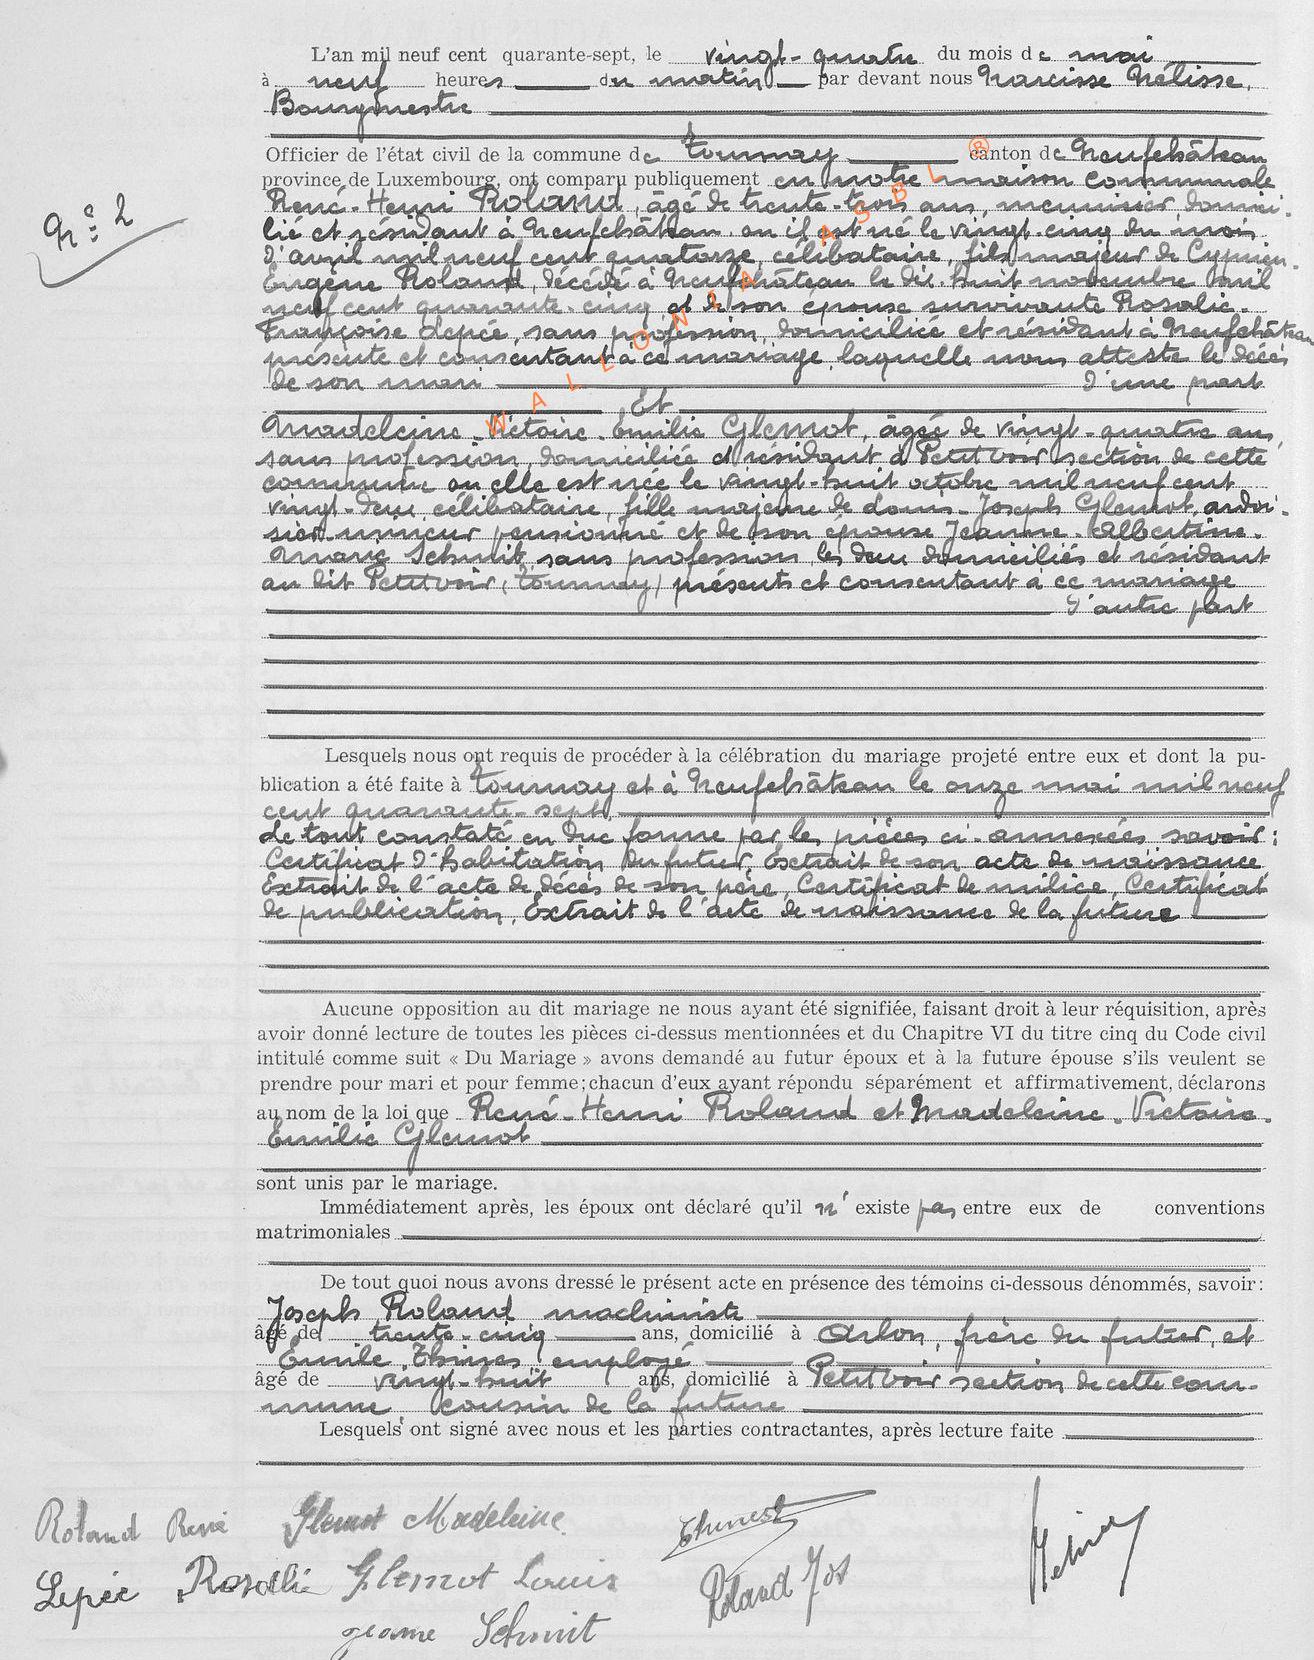 L'an mil neuf cent quarante-sept, le vingt-quatre du mois de mai
à neuf heures du matin par devant nous Narcisse Mélisse,
Bourgmestre
Officier de l'état civil de la commune de Tournay canton de Neufchâteau
province de Luxembourg, ont comparu publiquement en notre maison communale
René-Henri Roland, âgé de trente-trois ans, menuisier, domici-
lié et résidant à Neufchâteau où il est né le vingt-cinq du mois
d'avril mil neuf cent quatorze, célibataire, fils majeur de Cyprien-
Eugène Roland, décédé à Neufchâteau le dix-huit novembre mil
neuf cent quarante-cinq et de son épouse survivante Rosalie-
Françoise Lepée, sans profession, domiciliée et résidant à Neufchâteau
présente et consentant à ce mariage, laquelle nous atteste le décès
de son mari d'une part
Et
Madeleine-Victoire-Emilie Glemot, âgée de vingt-quatre ans,
sans profession, domiciliée et résidant à Petitvoir section de cette
commune où elle est née le vingt-huit octobre mil neuf cent
vingt-deux célibataire, fille majeure de Louis-Joseph Glemot, ardoi-
sier-mineur pensionné et de son épouse Jeanne-Albertine-
Marie Schmit, sans profession, les deux domiciliés et résidant
au dit Petitvoir (Tournay) présents et consentant à ce mariage
d'autre part
Lesquels nous ont requis de procéder à la célébration du mariage projeté entre eux et dont la pu-
blication a été faite à Tournay et à Neufchâteau le onze mai mil neuf
cent quarante-sept.
Le tout constaté en due forme par les pièces ci-annexées savoir:
Certificat d'habitation du futur, Extrait de son acte de naissance
Extrait de l'acte de décès de son père, Certificat de milice, Certificat
de publication, Extrait de l'acte de naissance de la future
Aucune opposition au dit mariage ne nous ayant été signifiée, faisant droit à leur réquisition, après
avoir donné lecture de toutes les pièces ci-dessus mentionnées et du Chapitre VI du titre cinq du Code civil
intitulé comme suit « Du Mariage » avons demandé au futur époux et à la future épouse s'ils veulent se
prendre pour mari et pour femme; chacun d'eux ayant répondu séparément et affirmativement, déclarons
au nom de la loi que René-Henri Roland et Madeleine-Victoire-
Emilie Glemot
sont unis par le mariage.
Immédiatement après, les époux ont déclaré qu'il n'existe pas entre eux de conventions
matrimoniales
De tout quoi nous avons dressé le présent acte en présence des témoins ci-dessous dénommés, savoir:
Joseph Roland machiniste
âgé de trente-cinq ans, domicilié à Arlon, frère du futur, et
Emile Thines employé
âgé de vingt-huit ans, domicilié à Petitvoir section de cette com-
mune cousin de la future
Lesquels ont signé avec nous et les parties contractantes, après lecture faite
N° 2
WALLONIA ASBL ®
Roland René Glemot Madeleine Thines
Lepée Rosalie Glemot Louis Roland Jos
Jeanne Schmit